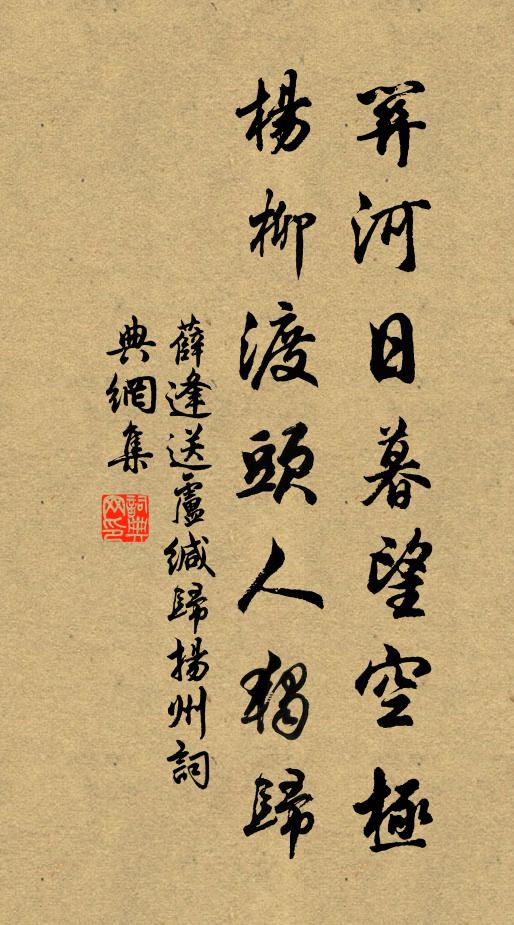 關河日暮望空極
楊柳渡頭人獨歸
薛逢送盧緘歸揚州詞
典網集
詞典
网印